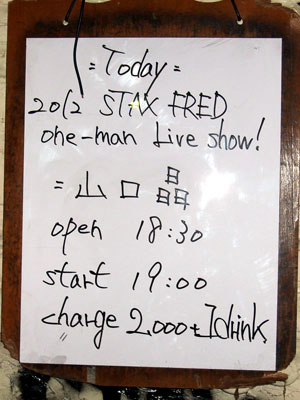 = Today =
2012 STAX FRED
one-man Live show!
= 山口晶
open 18:30
start 19:00
charge 2,000+1drink